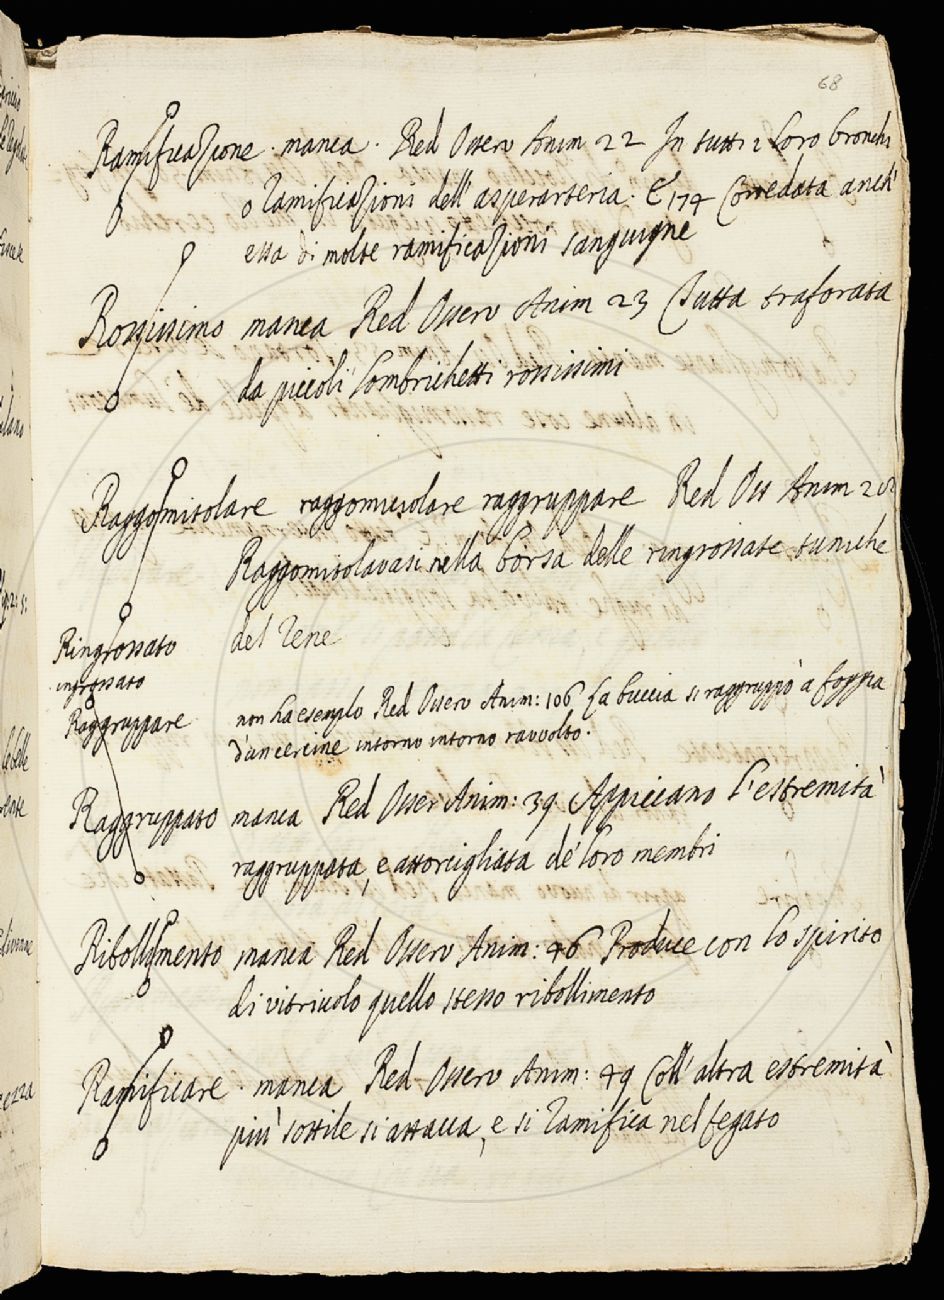 68
Ramificazione · manca · Red Osserv Anim 22 In tutti i loro bronchi
o ramificazioni dell'asperarteria. E 174 Corredata anch'
essa di molte ramificazioni sanguigne
Rossissimo manca Red Osserv Anim 23 Tutta traforata
da piccoli lombrichetti rossissimi
Raggomitolare raggomicolare raggruppare Red Oss Anim
Raggomitolavasi nella borsa delle ringrossate tuniche
del rene
Ringrossato
ingrossato
Raggruppare non ha esempio Red Osserv Anim: 106 La buccia si raggruppò à foggia
d'un cercine intorno intorno ravvolto.
Raggruppato manca Red Osser Anim: 39 Appiccano l'estremità
raggruppata, e attorcigliata de' loro membri
Ribollimento manca Red Osserv Anim: 46 Produce con lo spirito
di vitriuolo quello stesso ribollimento
Ramificare · manca Red Osserv Anim: 49 Coll'altra estremità
più sottile si attacca, e si ramifica nel fegato